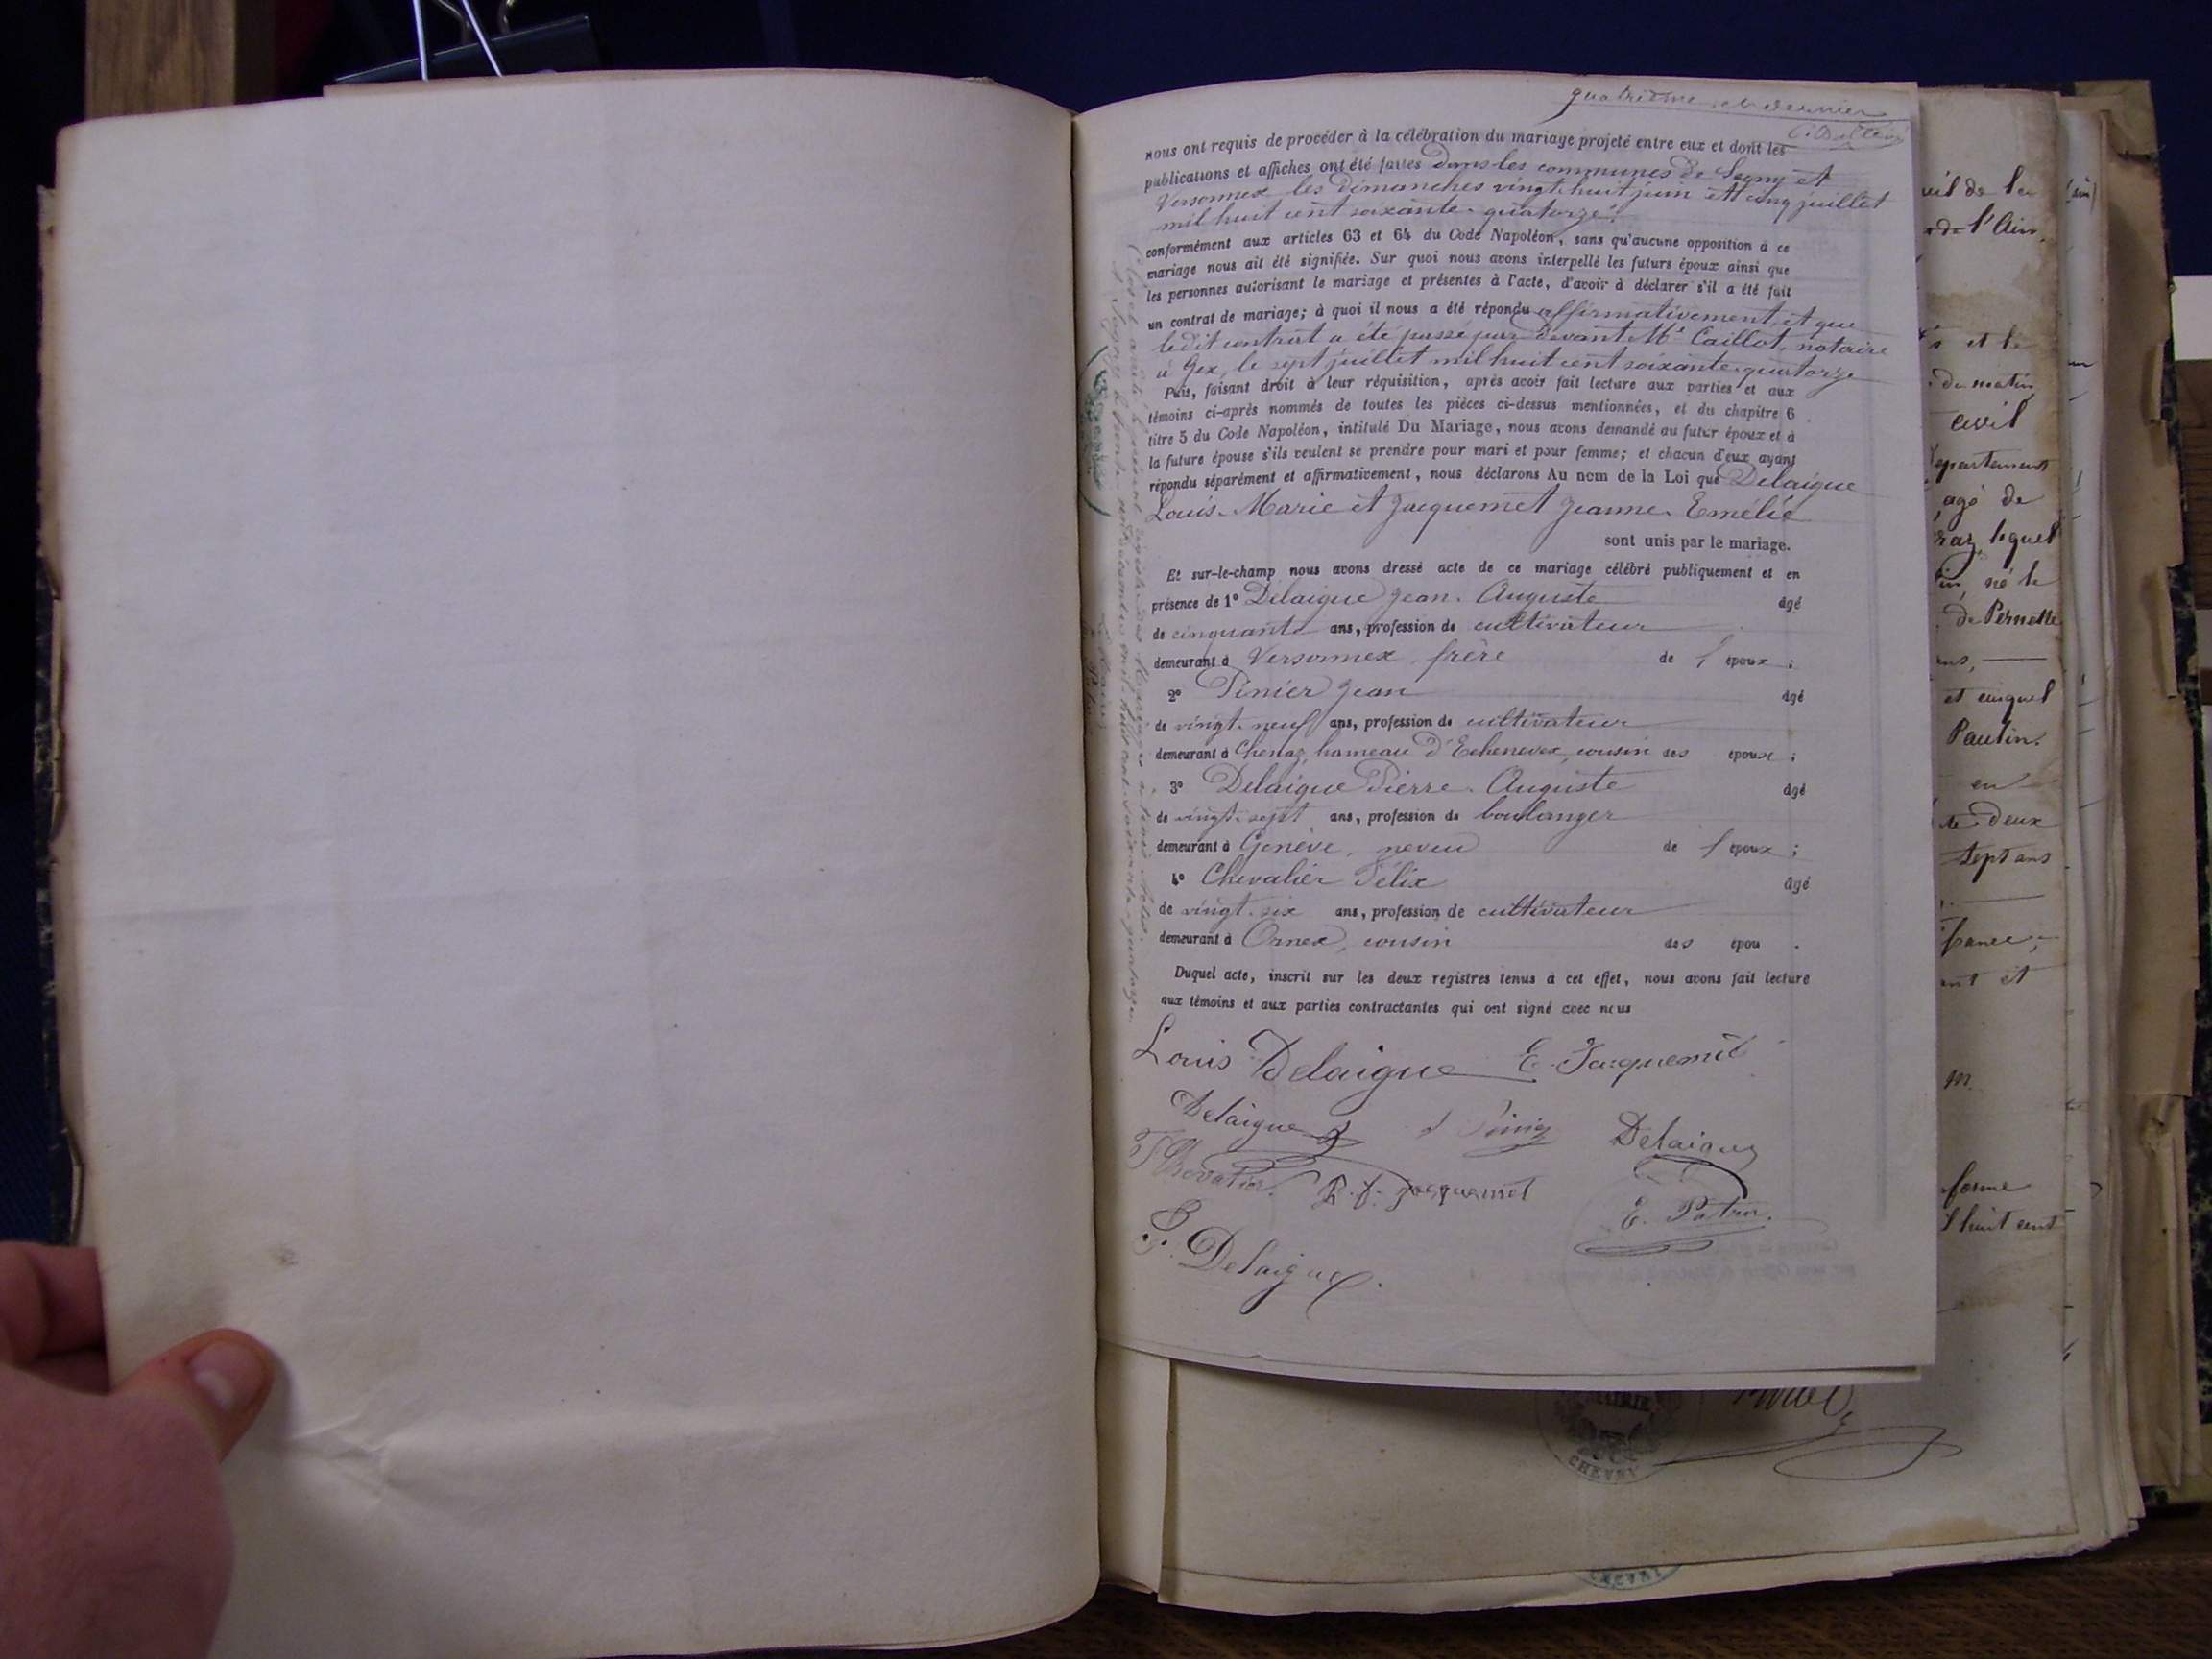 quatrième et dernier
nous ont requis de procéder à la célébration du mariage projeté entre eux et dont les
publications et affiches ont été faites dans les communes de Segny et
Versonnex les dimanches vingt-huit juin et cinq juillet
mil huit cent soixante-quatorze.
conformément aux articles 63 et 64 du Code Napoléon, sans qu'aucune opposition à ce
mariage nous ait été signifiée. Sur quoi nous avons interpellé les futurs époux ainsi que
les personnes autorisant le mariage et présentes à l'acte, d'avoir à déclarer s'il a été fait
un contrat de mariage; à quoi il nous a été répondu affirmativement, et que
ledit contrat a été passé par devant Me Caillot, notaire
à Gex, le sept juillet mil huit cent soixante-quatorze
Puis, faisant droit à leur réquisition, après avoir fait lecture aux parties et aux
témoins ci-après nommés de toutes les pièces ci-dessus mentionnées, et du chapitre 6
titre 5 du Code Napoléon, intitulé Du Mariage, nous avons demandé au futur époux et à
la future épouse s'ils veulent se prendre pour mari et pour femme; et chacun d'eux ayant
répondu séparément et affirmativement, nous déclarons Au nom de la Loi que Delaigue
Louis-Marie et Jacquemet Jeanne-Emélie
sont unis par le mariage.
Et sur-le-champ nous avons dressé acte de ce mariage célébré publiquement et en
présence de 1° Delaigue Jean-Auguste âgé
de cinquante ans, profession de cultivateur
demeurant à Versonnex, frère de l'époux;
2° Pinier Jean âgé
de vingt-neuf ans, profession de cultivateur
demeurant à Chenaz, hameau d'Echenevex, cousin des époux;
3° Delaigue Pierre-Auguste âgé
de vingt-sept ans, profession de boulanger
demeurant à Genève, neveu de l'époux;
4° Chevalier Félix âgé
de vingt-six ans, profession de cultivateur
demeurant à Ornex, cousin des épou .
Duquel acte, inscrit sur les deux registres tenus à cet effet, nous avons fait lecture
aux témoins et aux parties contractantes qui ont signé avec nous
Louis Delaigue E. Jacquemet
Delaigue J Pinier Delaigue
F Chevalier J. Jacquemet
E. Patron.
Delaigue.
Clos et arrêté le présent registre des Mariages à trois Actes.
mil huit cent soixante-quatorze.
eil de la
de l'Ain,
et le
du matin
civil
département
agé de
raz, lequel
né le
de Pernette
ans,
et auquel
Paulin.
en
te deux
sept ans
france,
ent et
m.
forme
l huit cent
MAIRIE
CHEVRY
CHEVRY